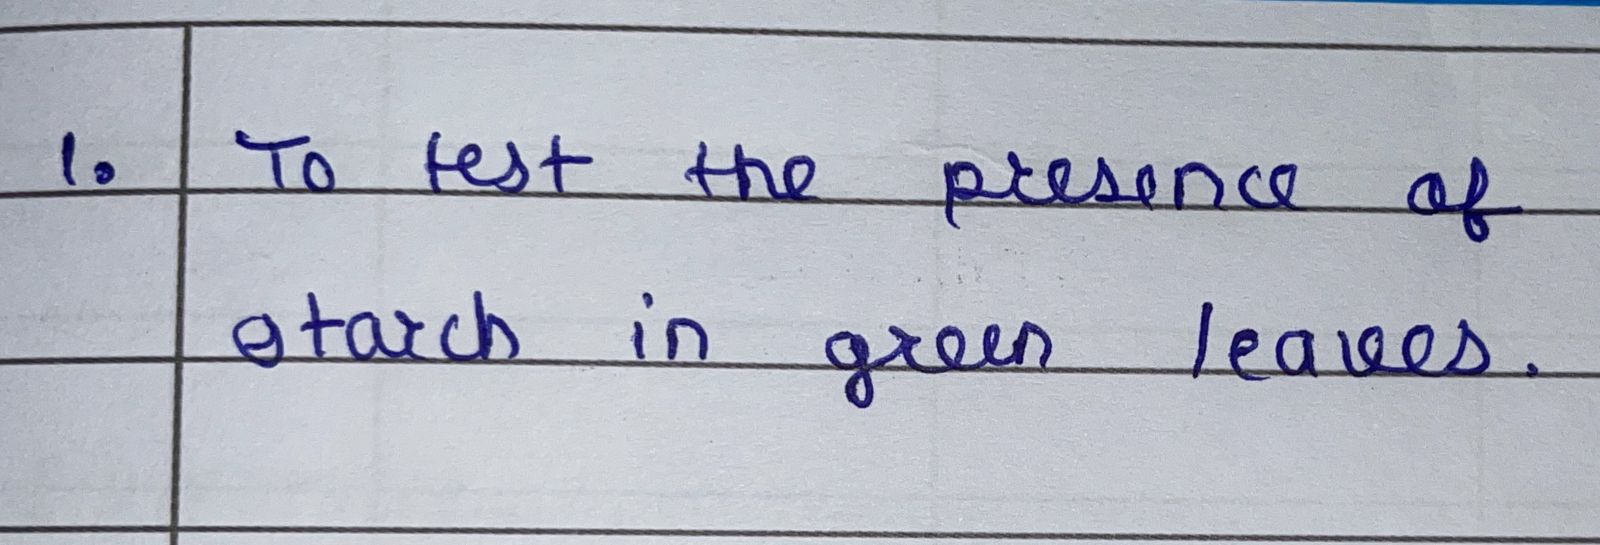 1. To test the presence of
starch in green leaves.